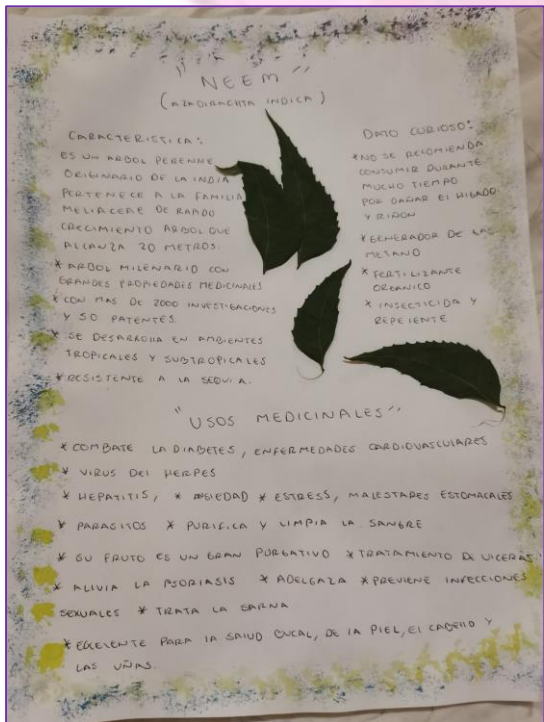 "NEEM"
(AZADIRACHTA INDICA)
CARACTERISTICA:
ES UN ARBOL PERENNE
ORIGINARIO DE LA INDIA
PERTENECE A LA FAMILIA
MELIACEAE DE RAPIDO
CRECIMIENTO ARBOL QUE
ALCANZA 20 METROS.
* ARBOL MILENARIO CON
GRANDES PROPIEDADES MEDICINALES
* CON MAS DE 2000 INVESTIGACIONES
Y 50 PATENTES.
* SE DESARROLLA EN AMBIENTES
TROPICALES Y SUBTROPICALES
* RESISTENTE A LA SEQUIA.
DATO CURIOSO:
* NO SE RECOMIENDA
CONSUMIR DURANTE
MUCHO TIEMPO
POR DAÑAR EL HIGADO
Y RIÑON
* GENERADOR DE GAS
METANO
* FERTILIZANTE
ORGANICO
* INSECTICIDA Y
REPELENTE
"USOS MEDICINALES"
* COMBATE LA DIABETES, ENFERMEDADES CARDIOVASCULARES
* VIRUS DEL HERPES
* HEPATITIS, * ANSIEDAD * ESTRESS, MALESTARES ESTOMACALES
* PARASITOS * PURIFICA Y LIMPIA LA SANGRE
* SU FRUTO ES UN GRAN PURGATIVO * TRATAMIENTO DE ULCERAS
* ALIVIA LA PSORIASIS * ADELGAZA * PREVIENE INFECCIONES
SEXUALES * TRATA LA SARNA
* EXCELENTE PARA LA SALUD BUCAL, DE LA PIEL, EL CABELLO Y
LAS UÑAS.